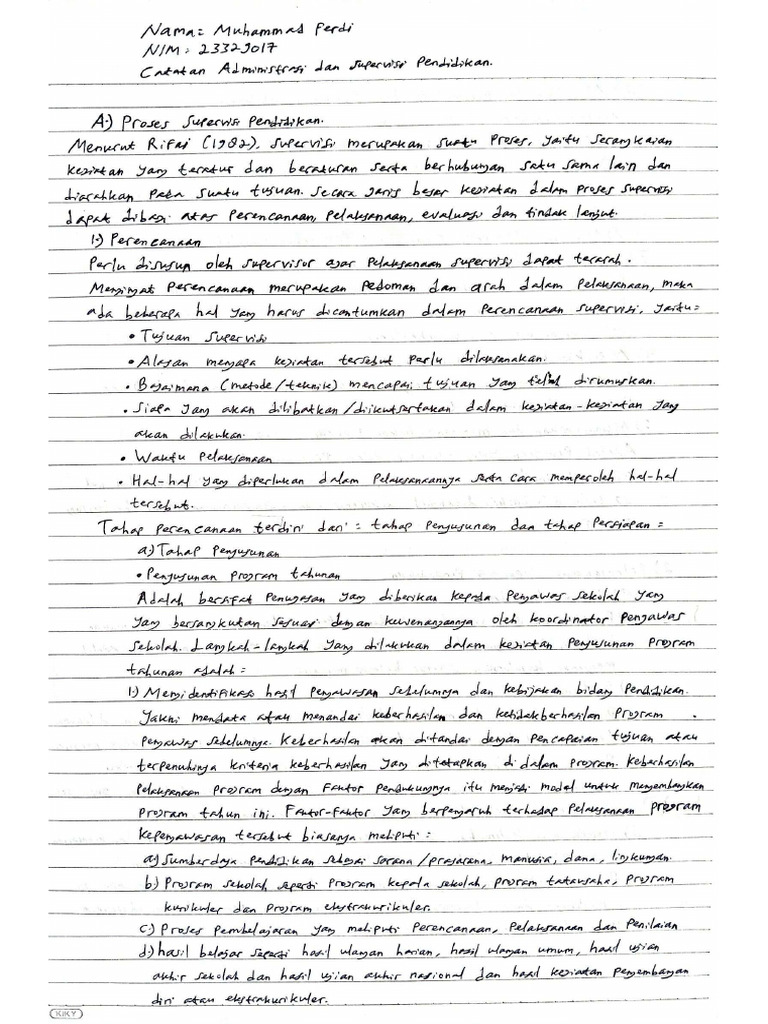 Nama = Muhammad Ferdi
NIM = 23329017
Catatan Administrasi dan Supervisi Pendidikan.
A.) Proses Supervisi Pendidikan.
Menurut Rifai (1982), supervisi merupakan suatu proses, yaitu serangkaian
kegiatan yang teratur dan beraturan serta berhubungan satu sama lain dan
diarahkan pada suatu tujuan. Secara garis besar kegiatan dalam proses supervisi
dapat dibagi atas perencanaan, pelaksanaan, evaluasi dan tindak lanjut.
1.) Perencanaan
Perlu disusun oleh supervisor agar pelaksanaan supervisi dapat terarah.
Mengingat perencanaan merupakan pedoman dan arah dalam pelaksanaan, maka
ada beberapa hal yang harus dicantumkan dalam perencanaan supervisi, yaitu =
• Tujuan supervisi
• Alasan mengapa kegiatan tersebut perlu dilaksanakan.
• Bagaimana (metode/teknik) mencapai tujuan yang telah dirumuskan.
• Siapa yang akan dilibatkan/diikutsertakan dalam kegiatan-kegiatan yang
akan dilakukan.
• Waktu pelaksanaan
• Hal-hal yang diperlukan dalam pelaksanaannya serta cara memperoleh hal-hal
tersebut.
Tahap perencanaan terdiri dari = tahap penyusunan dan tahap persiapan =
a.) Tahap penyusunan
• Penyusunan program tahunan
Adalah bersifat penugasan yang diberikan kepada pengawas sekolah yang
yang bersangkutan sesuai dengan kewenangannya oleh koordinator pengawas
sekolah. Langkah-langkah yang dilakukan dalam kegiatan penyusunan program
tahunan adalah =
1.) Mengidentifikasi hasil pengawasan sebelumnya dan kebijakan bidang pendidikan.
Yakni mendata atau menandai keberhasilan dan ketidakberhasilan program
pengawas sebelumnya. Keberhasilan akan ditandai dengan pencapaian tujuan atau
terpenuhinya kriteria keberhasilan yang ditetapkan di dalam program. Keberhasilan
pelaksanaan program dengan faktor pendukungnya itu menjadi modal untuk mengembangkan
program tahun ini. Faktor-faktor yang berpengaruh terhadap pelaksanaan program
kepengawasan tersebut biasanya meliputi :
a) Sumberdaya pendidikan sebagai sarana/prasarana, manusia, dana, lingkungan.
b) Program sekolah seperti program kepala sekolah, program tatausaha, program
kurikuler dan program ekstrakurikuler.
c) Proses pembelajaran yang meliputi perencanaan, pelaksanaan dan penilaian
d) hasil belajar seperti hasil ulangan harian, hasil ulangan umum, hasil ujian
akhir sekolah dan hasil ujian akhir nasional dan hasil kegiatan pengembangan
diri atau ekstrakurikuler.
KIKY